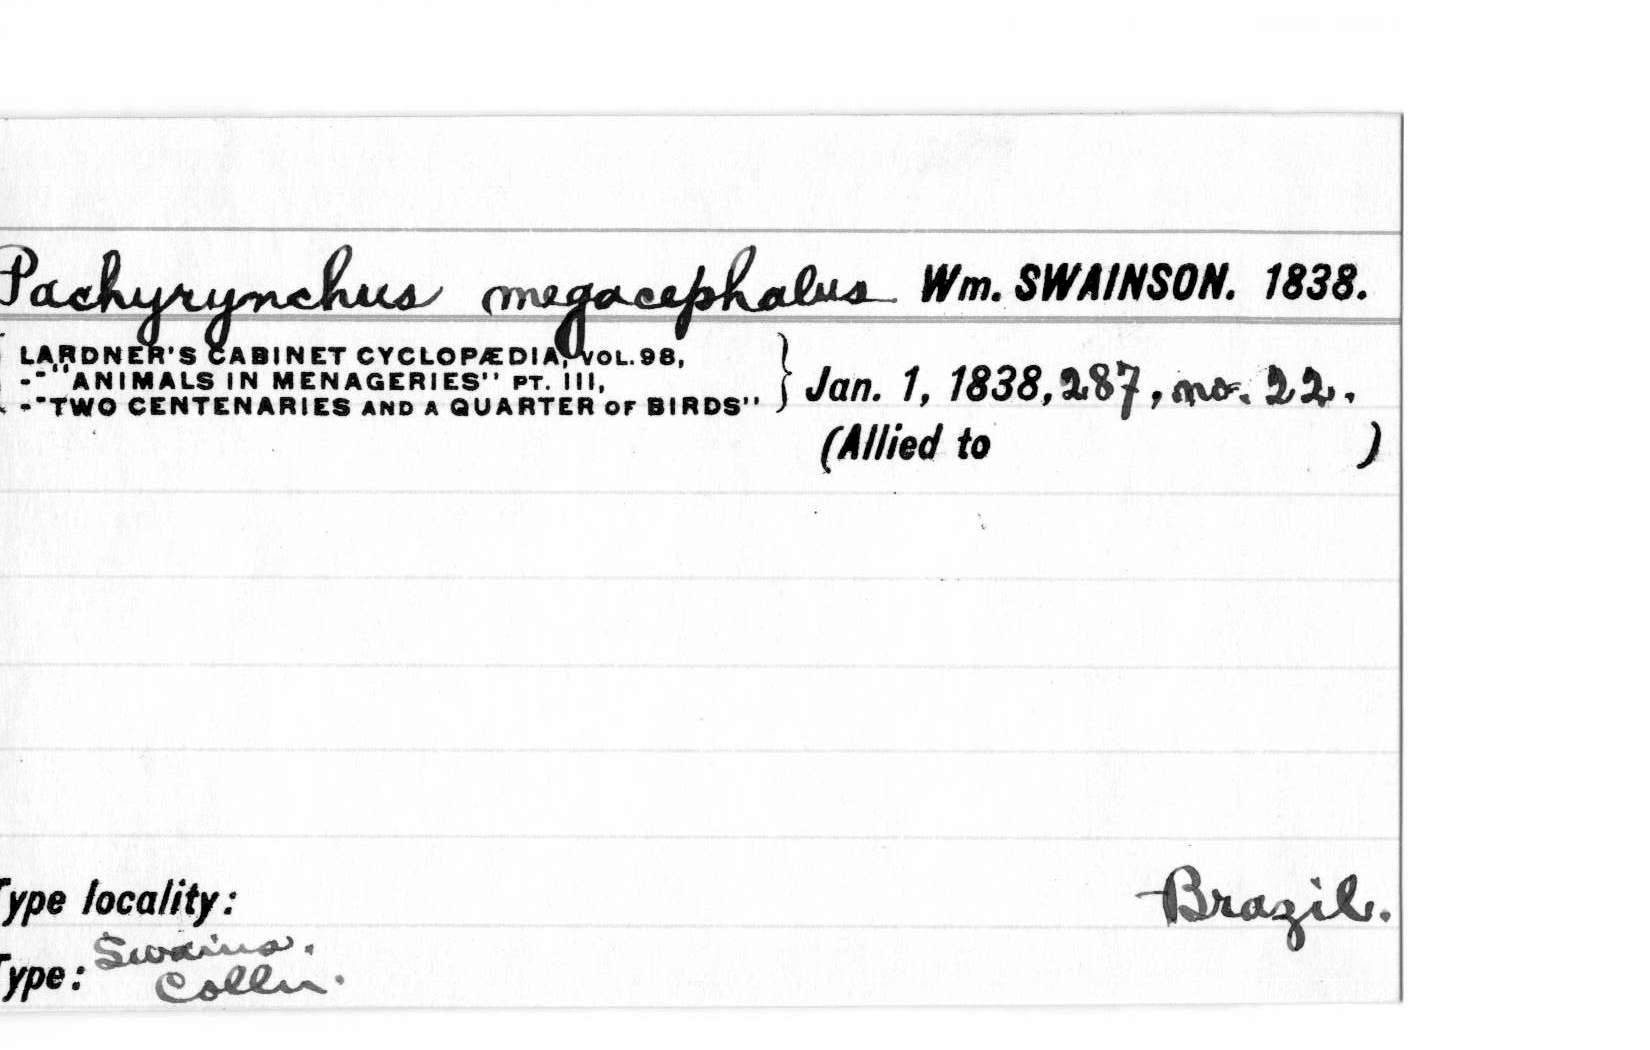 Pachyrynchus megacephalus Wm. SWAINSON. 1838.
LARDNER'S CABINET CYCLOPÆDIA, VOL. 98,
-"ANIMALS IN MENAGERIES" PT. III,
-"TWO CENTENARIES AND A QUARTER OF BIRDS"
Jan. 1, 1838, 287, no. 22.
(Allied to )
Type locality: Brazil.
Swains.
Type: Colln.